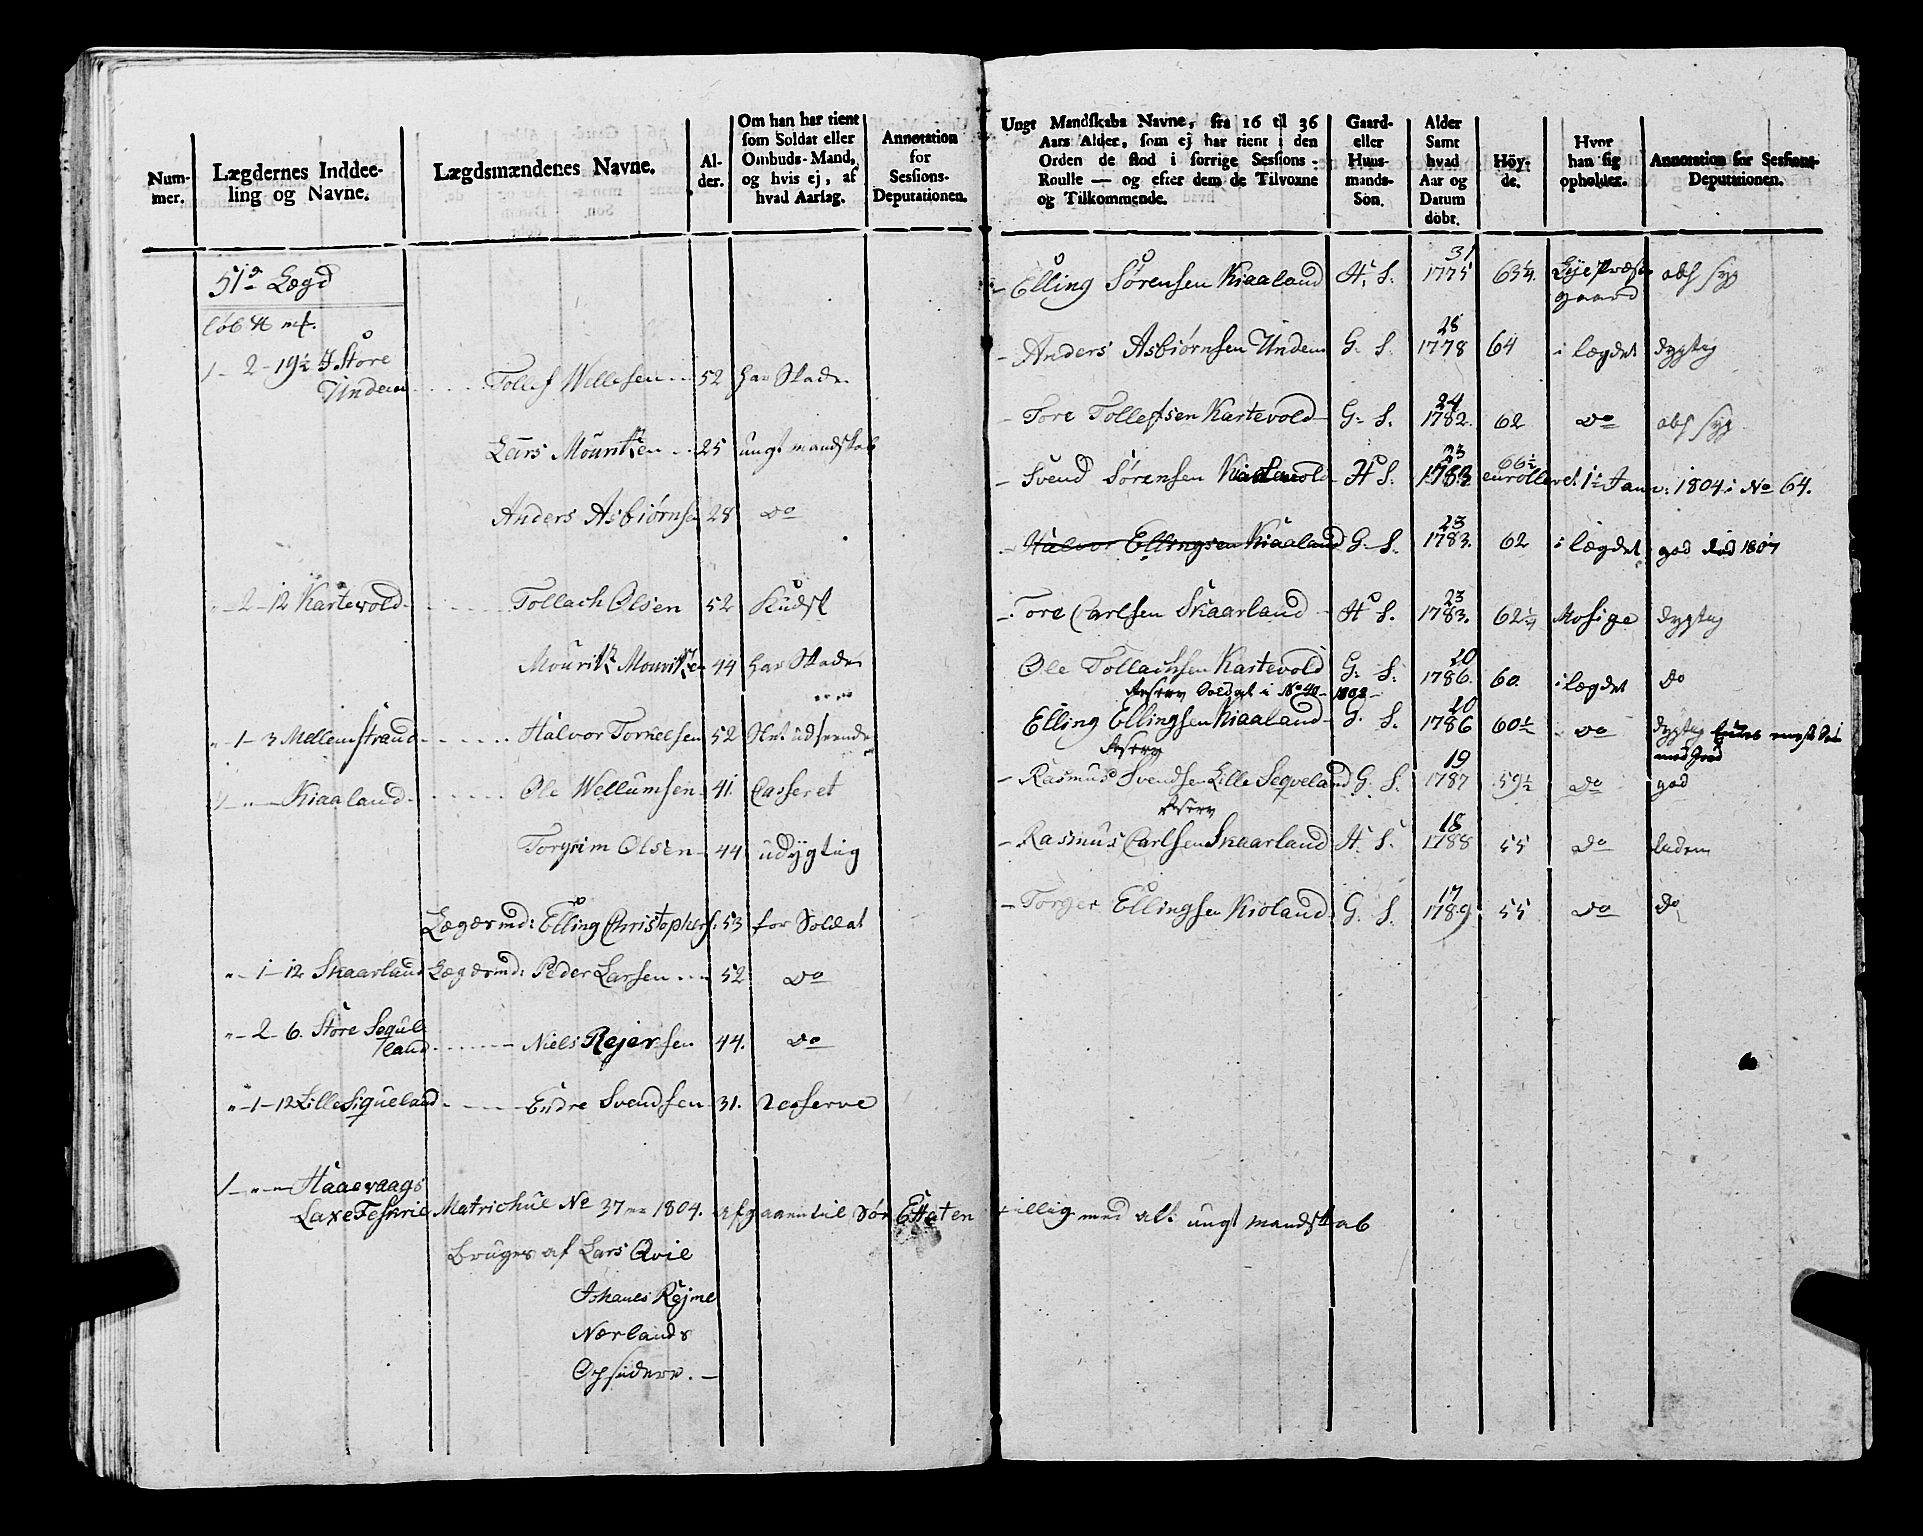 Num-
mer.
Lægdernes Inddee-
ling og Navne.
Lægdsmændenes Navne.
Al-
der.
Om han har tient
som Soldat eller
Ombuds-Mand,
og hvis ej, af
hvad Aarsag.
Annotation
for
Sessions-
Deputationen.
51de Lægd
løb ℔ mf.
1 - 2 - 19½ Store
Undem - - - - Tollef Willesen - - 52 har Skade
Lars Mouritzen - - 25 ungt mandskab
Anders Asbiørnsen 28 do
" - 2 - 12 Kartevold - - - - - Tollach Olsen 52 Kudsk
Mouritz Mouritzen 44 har Skade
" - 1 - 3 Mellemstrand - - - - Halvor Torkelsen 52 Slet udseende
1 - " - Kiaaland - - - - - Ole Wellumsen - 41. Casseret
Torgrim Olsen - 44 udygtig
Lægdsmd: Elling Christophers. 53 for Soldat
" - 1 - 12 Skaarland Lægdsmd: Peder Larsen - - - 52 do
" - 2 - 6. Store Seque
land - - - - - Niels Rejersen 44. do
" - 1 - 12 Lille Siqueland - - - - Endre Svendsen 31. Reserve
1 - " - " - Haaevaags
Laxe Feskrie Matrichul No 37 - 1804. afgaaen til Sør Etaten tillig med alt ungt mandskab
bruges af Lars Qvie
Johanes Rejme
Nærlands
Opsidere. -
Ungt Mandskabs Navne, fra 16 til 36
Aars Alder, som ej har tient i den
Orden de stod i forrige Sessions-
Roulle — og efter dem de Tilvoxne
og Tilkommende.
Gaard-
eller
Huus-
mands-
Søn.
Alder
Samt
hvad
Aar og
Datum
døbt.
Höy-
de.
Hvor
han sig
opholder.
Annotation for Sessions-
Deputationen.
31
- Elling Sørensen Kiaaland H. S. 1775 63¼. Eje Præste
gaard obs syg
28
- Anders Asbiørnsen Undem G. S. 1778 64 i lægdet dygtig
24
- Tore Tollefsen Kartevold G. S. 1782. 62 do obs syg
23 66½
- Svend Sørensen H. S. 1783 enrolleret 1te Janu: 1804 i No 64.
23
- Halvor Ellingsen Kiaaland G. S. 1783. 62 i lægdet god død 1807
23
- Tore Carlsen Skaarland H. S. 1783. 62¼ Mosige dygtig
20
Ole Tollachsen Kartevold G. S. 1786. 60. i lægdet do
Reserv Soldat i No 40 - 1808 -
20
Elling Ellingsen Kiaaland - G. S. 1786 60½ do dygtig
Reserv
19
- Rasmus Svendsen Lille Seqveland G. S. 1787 59½ do god
Reserv
18
- Rasmus Carlsen Skaarland H. S. 1788 55 do liden
17
- Torger Ellingsen Kioland. G. S. 1789. 55 do do